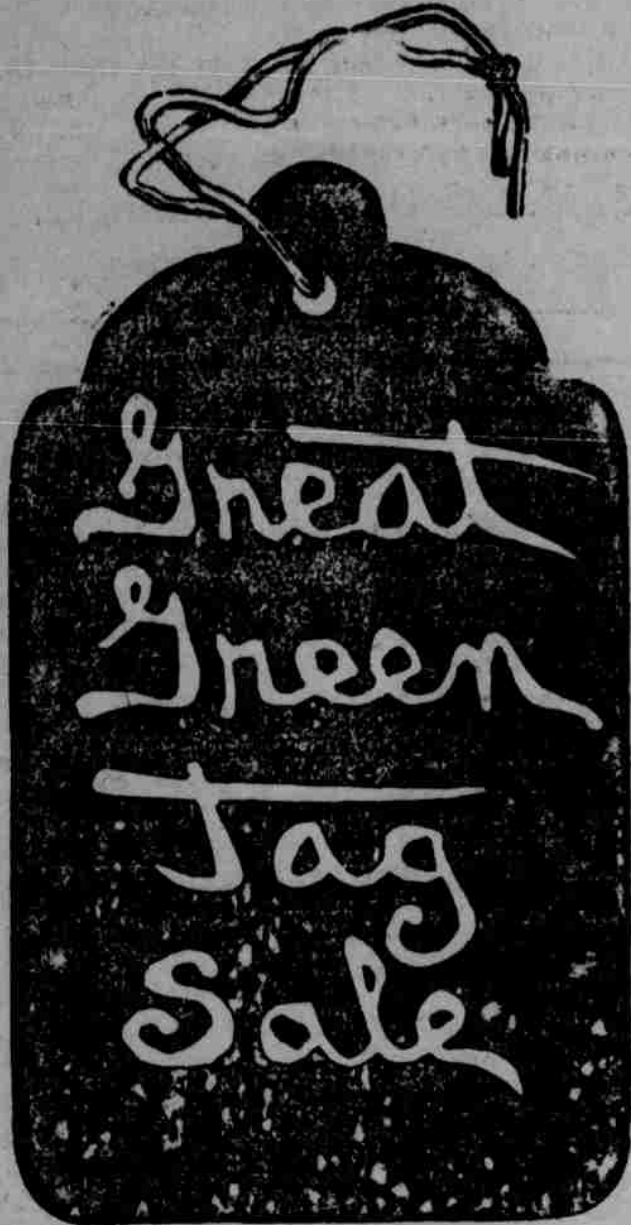 Great
Green
Tag
Sale